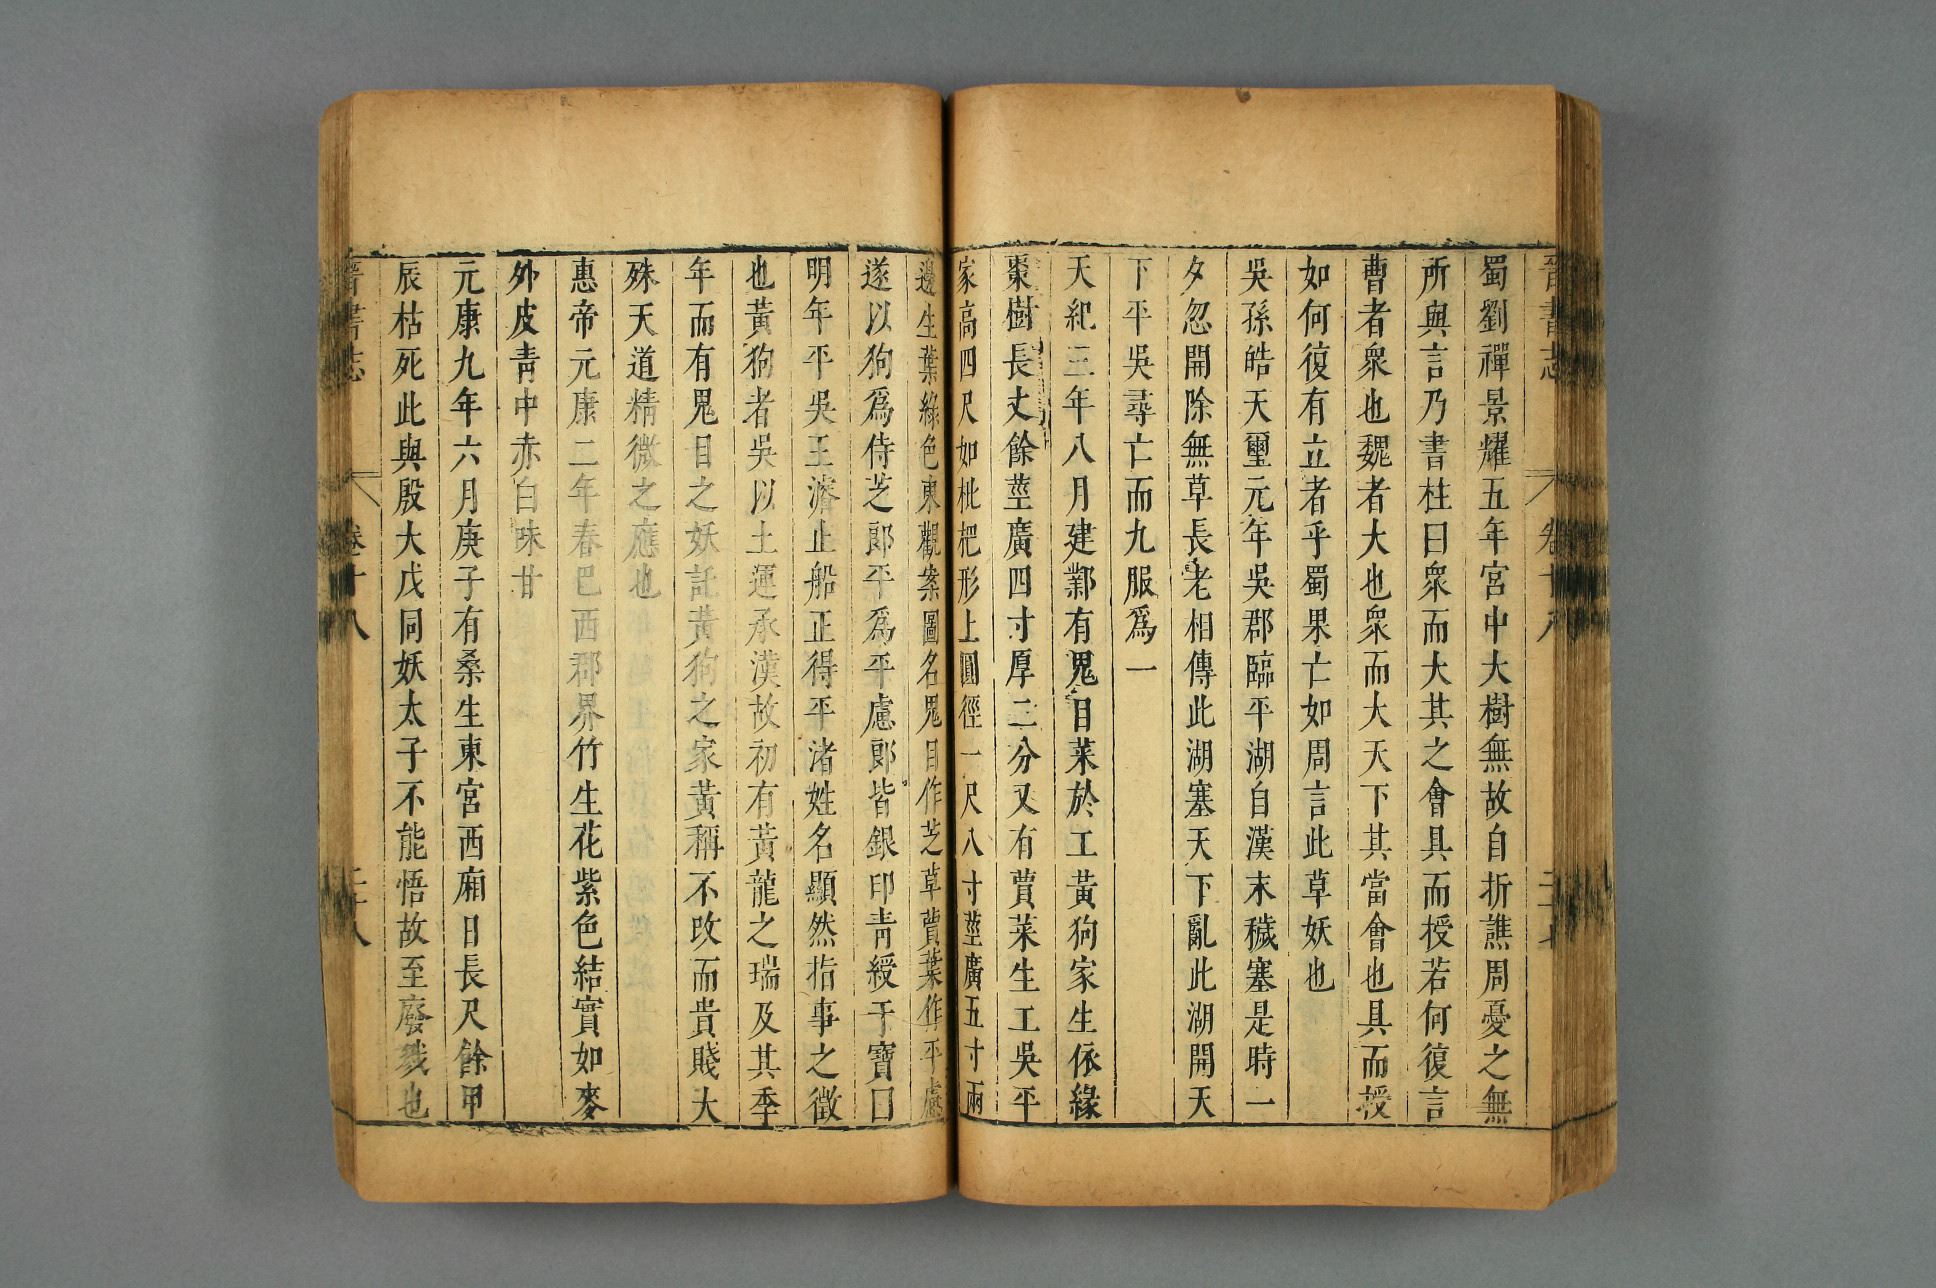 晉書志 卷十八 二十七
蜀劉禪景耀五年宮中大樹無故自折譙周憂之無
所與言乃書柱曰衆而大其之會具而授若何復言
曹者衆也魏者大也衆而大天下其當會也具而授
如何復有立者乎蜀果亡如周言此草妖也
吳孫皓天璽元年吳郡臨平湖自漢末穢塞是時一
夕忽開除無草長老相傳此湖塞天下亂此湖開天
下平吳尋亡而九服爲一
天紀三年八月建鄴有鬼目菜於工黃狗家生依緣
棗樹長丈餘莖廣四寸厚二分又有蕒菜生工吳平
家高四尺如枇杷形上圓徑一尺八寸莖廣五寸兩
邊生葉綠色東觀案圖名鬼目作芝草蕒葉作平慮
遂以狗爲侍芝郎平爲平慮郎皆銀印靑綬干寶曰
明年平吳王濬止船正得平渚姓名顯然指事之徵
也黃狗者吳以土運承漢故初有黃龍之瑞及其季
年而有鬼目之妖託黃狗之家黃稱不改而貴賤大
殊天道精微之應也
惠帝元康二年春巴西郡界竹生花紫色結實如麥
外皮靑中赤白味甘
元康九年六月庚子有桑生東宮西廂日長尺餘甲
辰枯死此與殷大戊同妖太子不能悟故至廢戮也
晉書志 卷十八 二十八